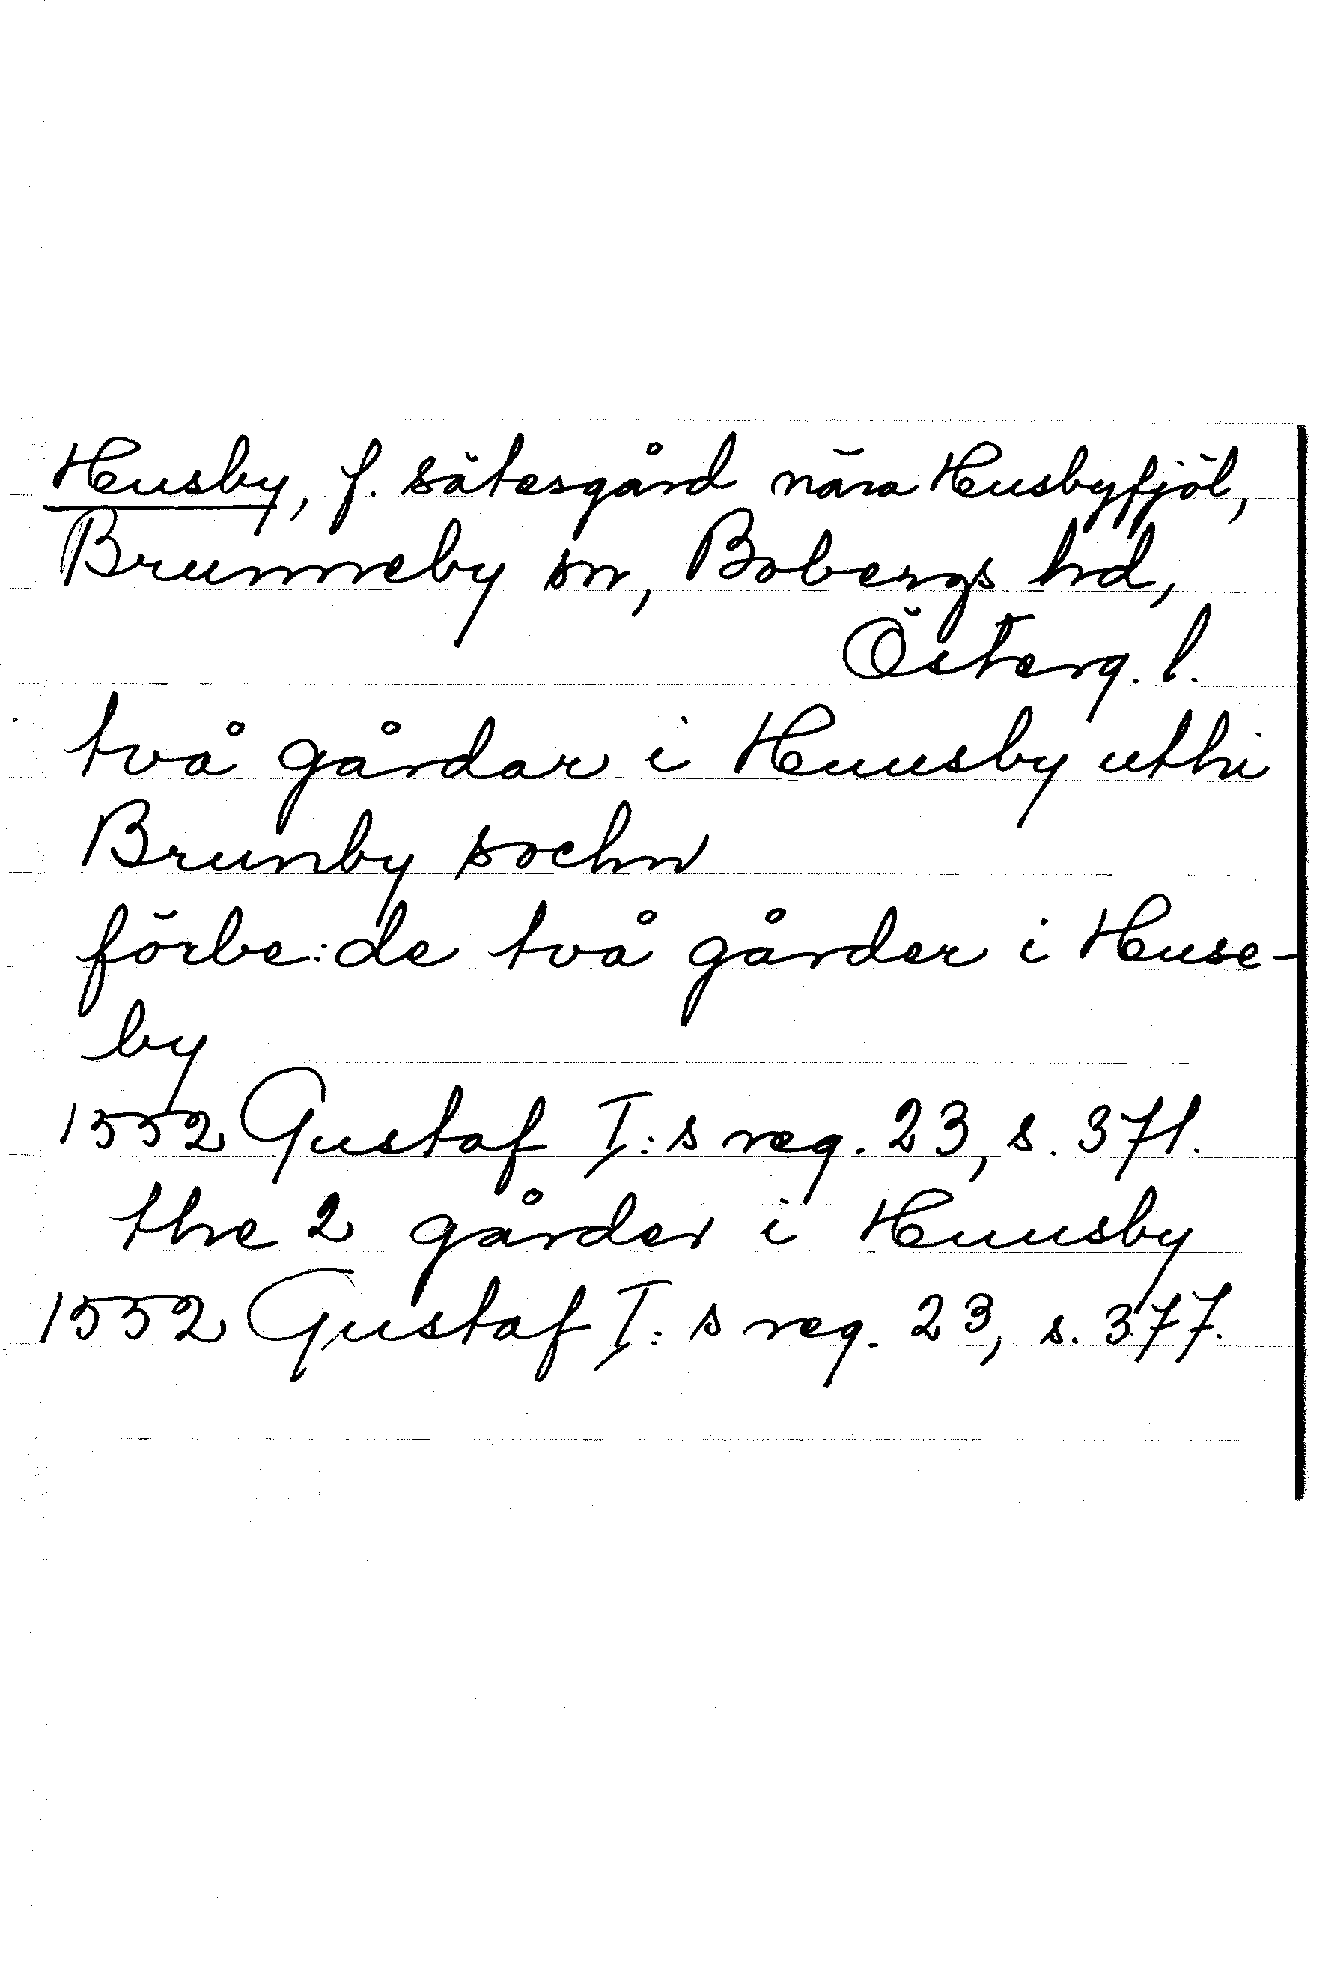 Husby, f. sätesgård nära Husbyfjöl,
Brunneby sn, Bobergs hd,
Österg. l.
två gårdar i Huusby uthi
Brunby sochn
förbe:de två gårder i Huse-
by
1552 Gustaf I:s reg. 23, s. 371.
the 2 gårder i Huusby
1552 Gustaf I:s reg. 23, s. 377.